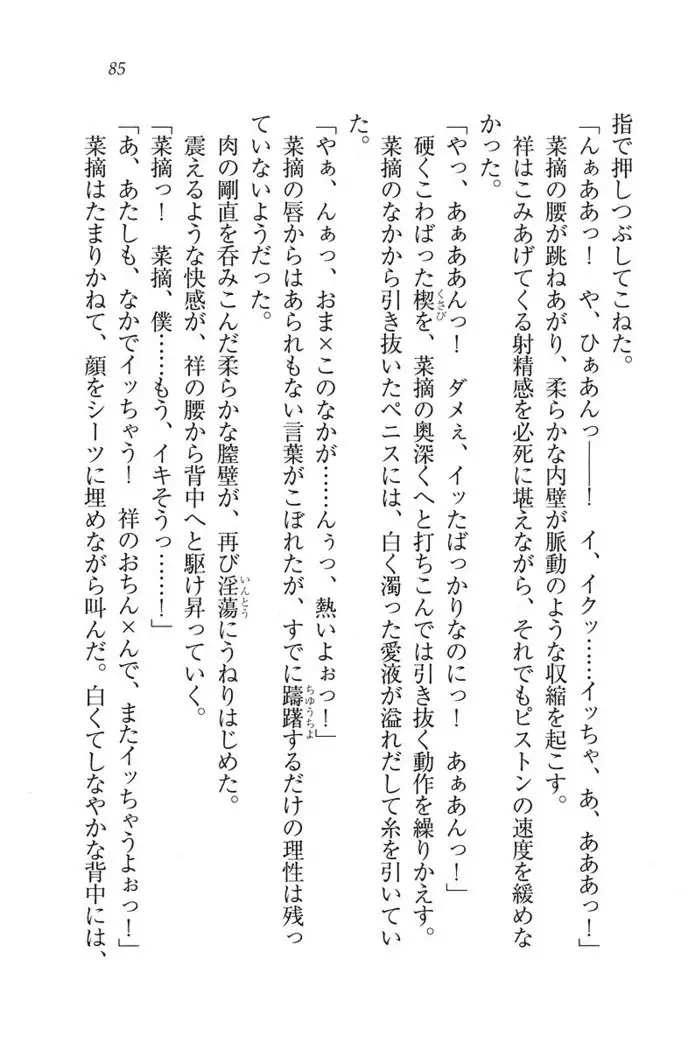 85
指で押しつぶしてこねた。
「んぁああっ！　や、ひぁあんっ――！　イ、イクッ……イッちゃ、あ、あああっ！」
菜摘の腰が跳ねあがり、柔らかな内壁が脈動のような収縮を起こす。
祥はこみあげてくる射精感を必死に堪えながら、それでもピストンの速度を緩めな
かった。
「やっ、あぁああんっ！　ダメぇ、イッたばっかりなのにっ！　あぁあんっ！」
硬くこわばった楔くさびを、菜摘の奥深くへと打ちこんでは引き抜く動作を繰りかえす。
菜摘のなかから引き抜いたペニスには、白く濁った愛液が溢れだして糸を引いてい
た。
「やぁ、んぁっ、おま×このなかが……んぅっ、熱いよぉっ！」
菜摘の唇からはあられもない言葉がこぼれたが、すでに躊躇ちゅうちょするだけの理性は残っ
ていないようだった。
肉の剛直を呑みこんだ柔らかな膣壁が、再び淫蕩いんとうにうねりはじめた。
震えるような快感が、祥の腰から背中へと駆け昇っていく。
「菜摘っ！　菜摘、僕……もう、イキそうっ……！」
「あ、あたしも、なかでイッちゃう！　祥のおちん×んで、またイッちゃうよぉっ！」
菜摘はたまりかねて、顔をシーツに埋めながら叫んだ。白くてしなやかな背中には、